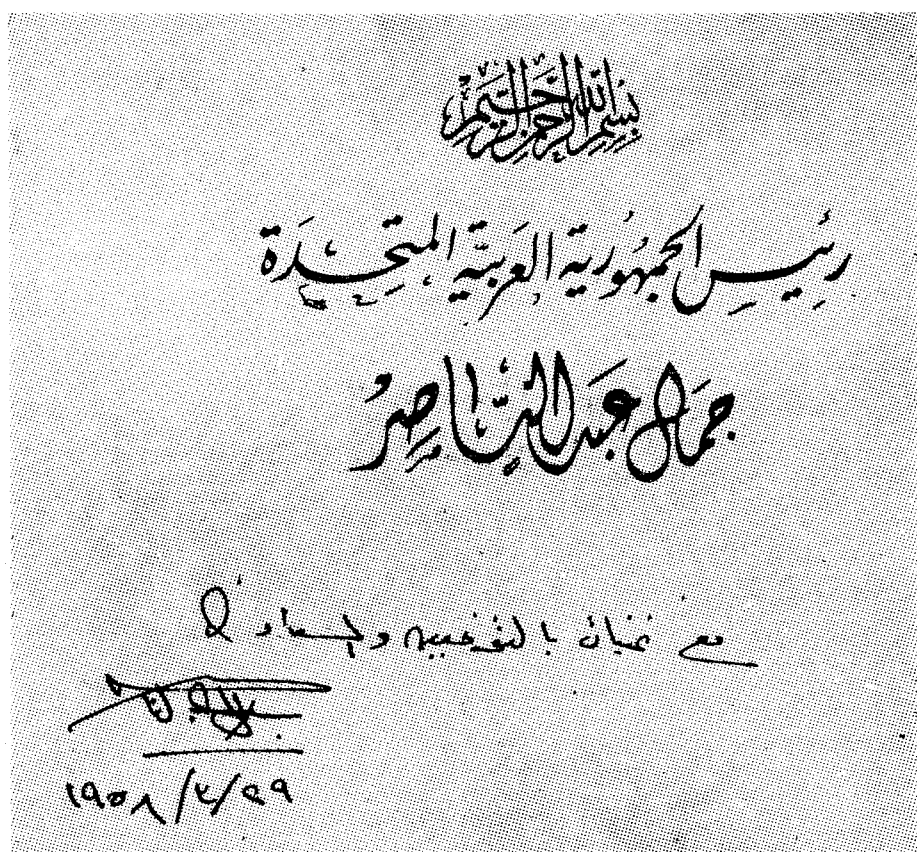 بسم الله الرحمن الرحيم
رئيس الجمهورية العربية المتحدة
جمال عبد الناصر
مع تمنياتي بالتوفيق والسعادة